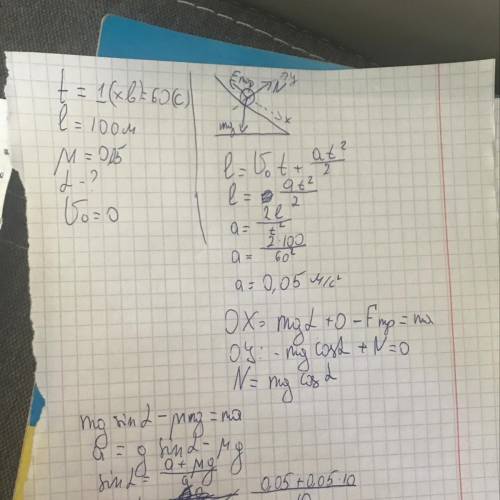 t = 1(хв)=60(с)
l = 100м
μ = 0,05
α - ?
υ₀ = 0
Fтр N y
mg x
l = υ₀t + at²/2
l = at²/2
a = 2l/t²
a = 2·100/60²
a = 0,05 м/с²
OX = mgα + 0 - Fтр = ma
OY: -mg cosα + N = 0
N = mg cosα
mg sinα - μmg = ma
a = g sinα - μg
sinα = a + μg/g
0,05 + 0,05·10/10